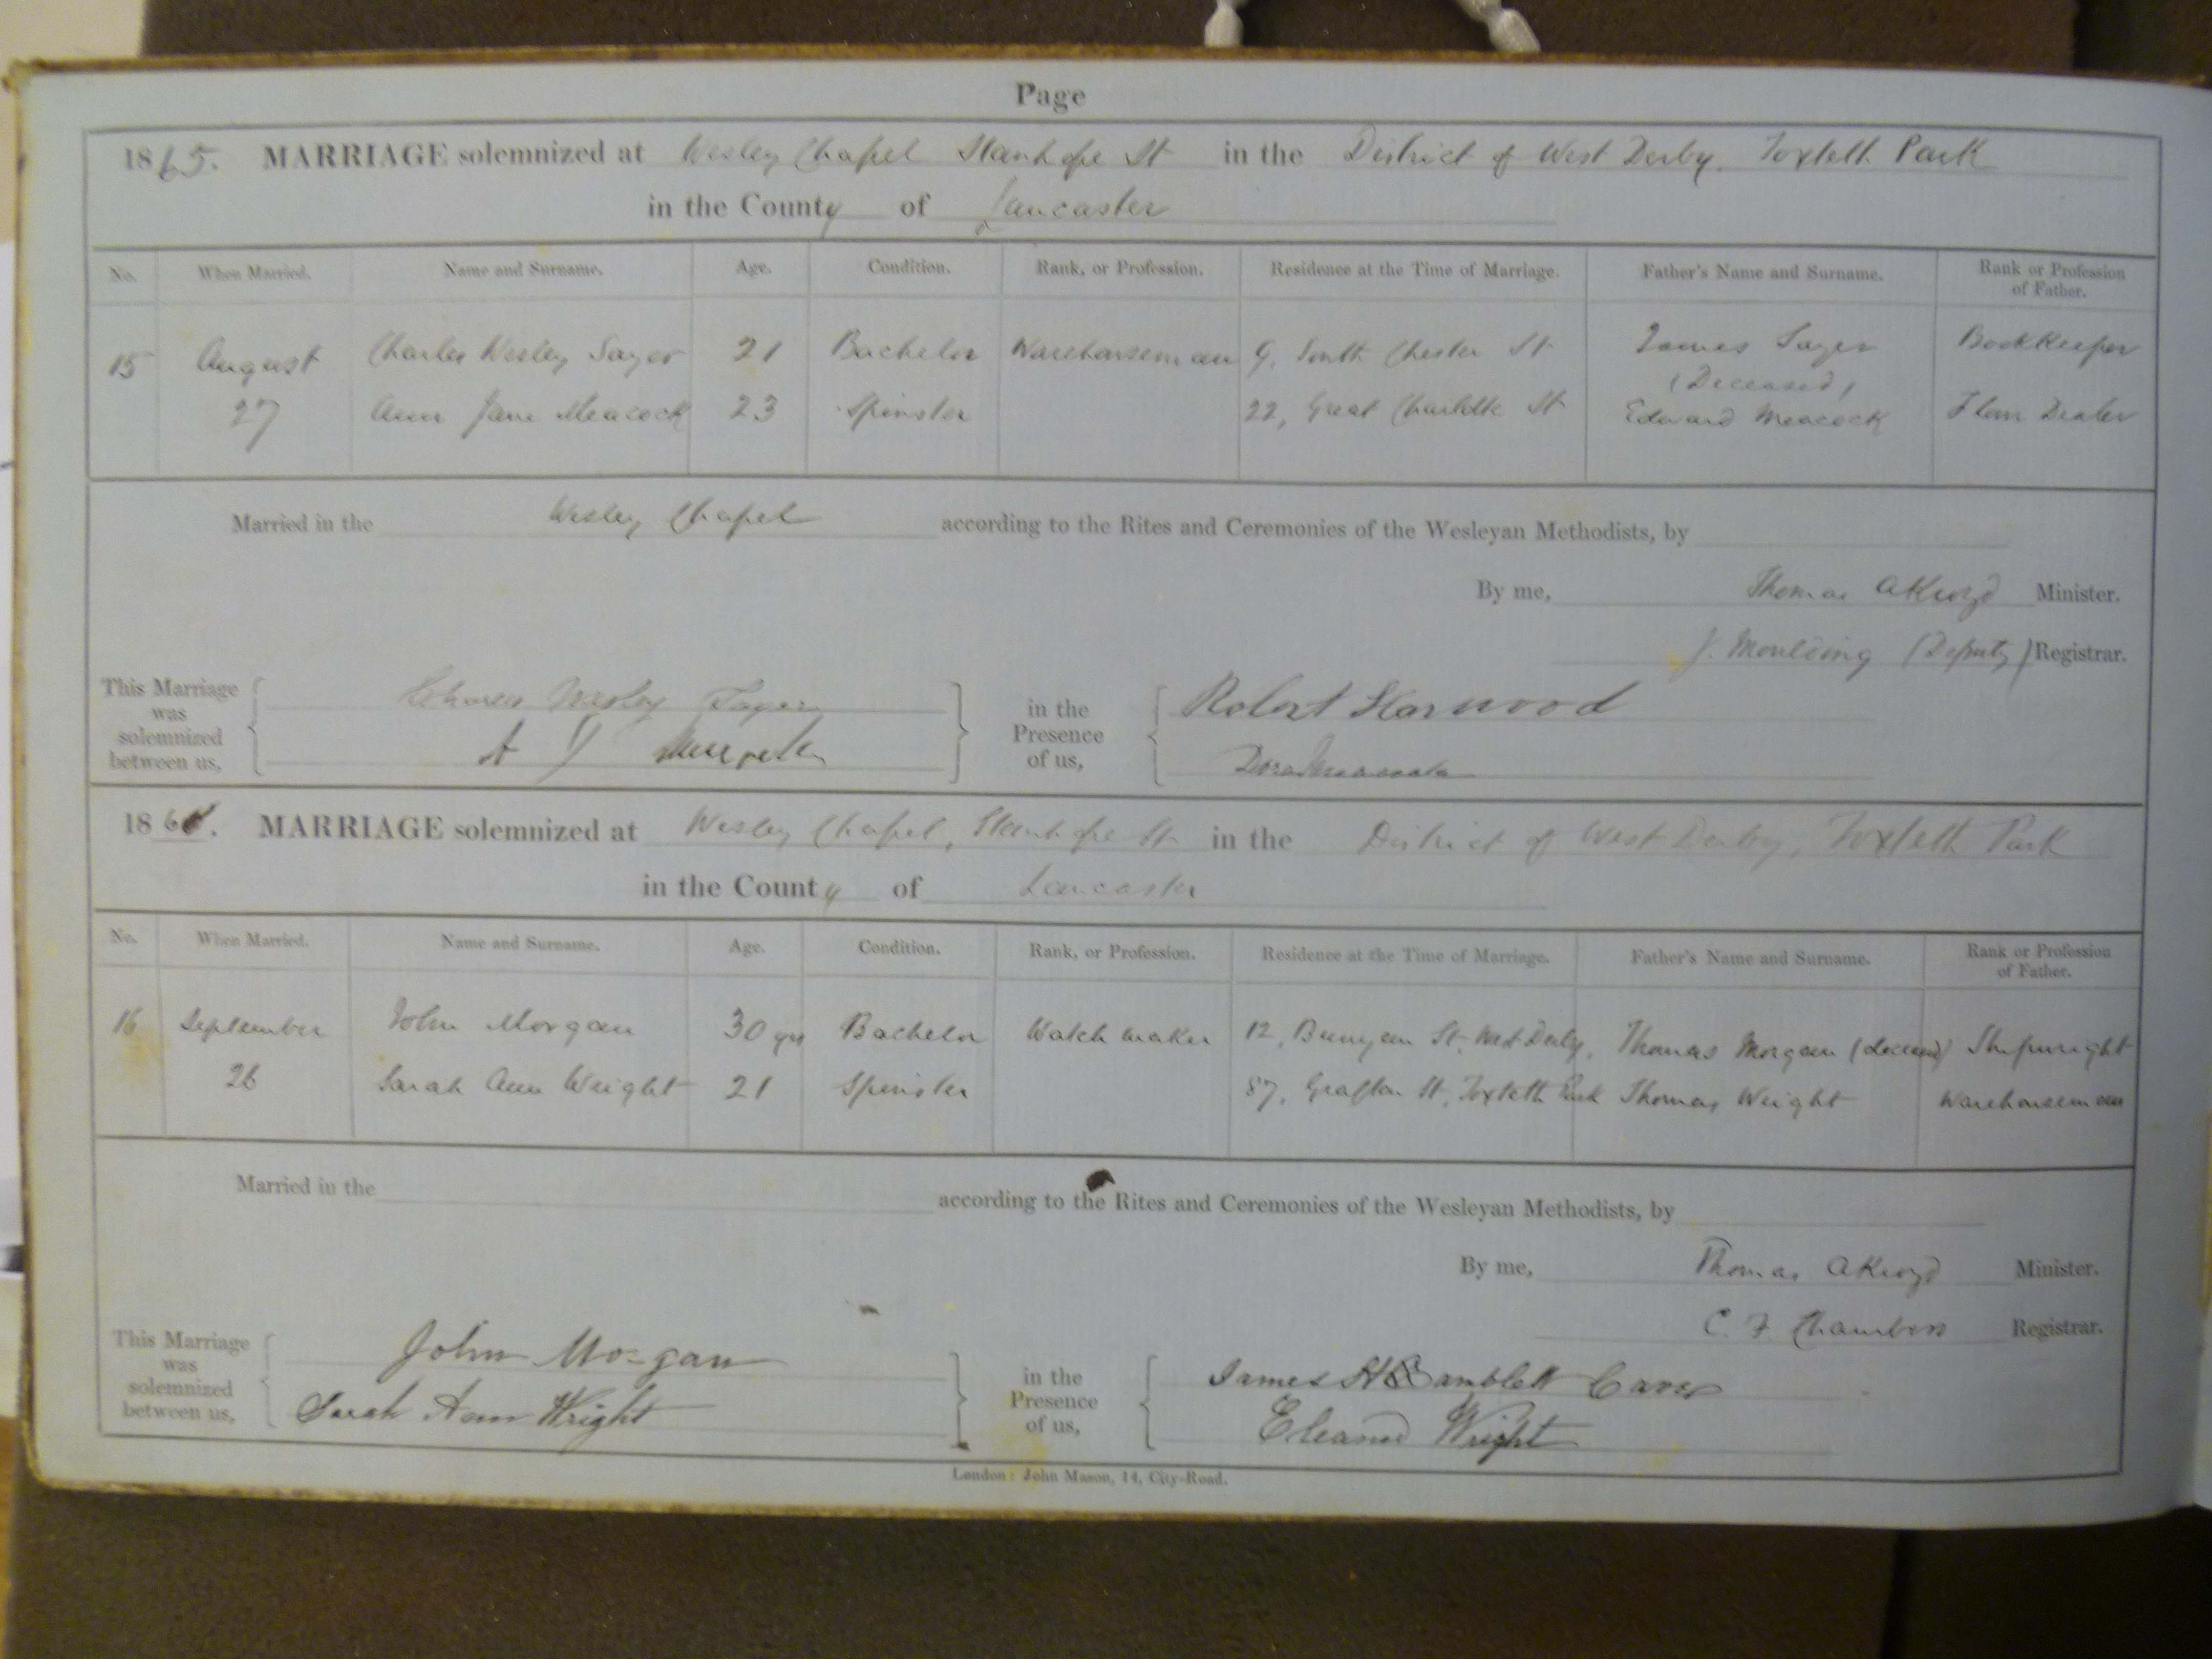 Page
1865. MARRIAGE solemnized at Wesley Chapel Stanhope St in the District of West Derby. Toxteth Park
in the County of Lancaster
No. When Married. Name and Surname. Age. Condition. Rank, or Profession. Residence at the Time of Marriage. Father's Name and Surname. Rank or Profession of Father.
15 August Charles Wesley Sayer 21 Bachelor Warehouseman 9, South Chester St James Sayer Bookkeeper
(Deceased)
27 Ann Jane Meacock 23 Spinster 22, Great Charlotte St Edward Meacock Flour Dealer
Married in the Wesley Chapel according to the Rites and Ceremonies of the Wesleyan Methodists, by
By me, Thomas Akroyd Minister.
J. Moulding (Deputy) Registrar.
This Marriage was solemnized between us, Charles Wesley Sayer in the Presence of us, Robert Harwood
A J
186 . MARRIAGE solemnized at Wesley Chapel, Stanhope St in the District of West Derby, Toxteth Park
in the County of Lancaster
No. When Married. Name and Surname. Age. Condition. Rank, or Profession. Residence at the Time of Marriage. Father's Name and Surname. Rank or Profession of Father.
16 September John Morgan 30 yrs Bachelor Watch maker 12, Bunyan St. West Derby. Thomas Morgan (deceased) Shipwright
26 Sarah Ann Wright 21 Spinster 87, Grafton St, Toxteth Park Thomas Wright Warehouseman
Married in the according to the Rites and Ceremonies of the Wesleyan Methodists, by
By me, Thomas Akroyd Minister.
C. F. Chambers Registrar.
This Marriage was solemnized between us, John Morgan in the Presence of us, James
Sarah Ann Wright Eleanor Wright
London: John Mason, 14, City-Road.